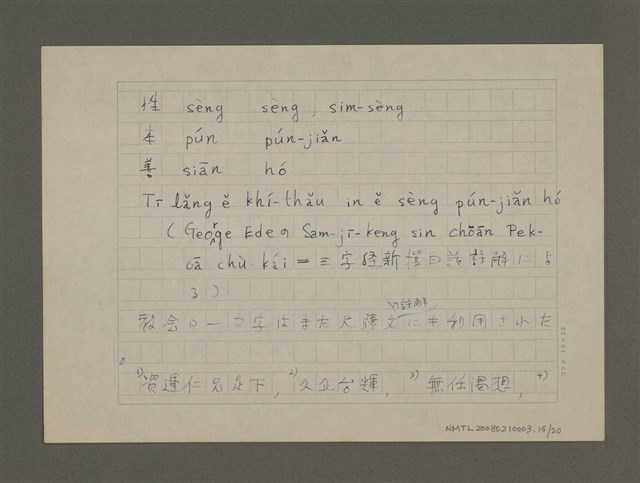 性 sèng sèng, sim-sèng
本 pún pún-jiǎn
善 siān hó
Tī lǎng ě khí-thǎu in ě sèng pún-jiǎn hó
(George Ede の Sam-jī-keng sin choān Pek-
ōa chù-kái = 三字経新撰白話註解によ
る)
の註解
教会ローマ字はまた尺牘文にも利用された
。
1) 資運仁兄足下, 2) 久企台輝, 3) 無任渇想, 4)
NMTL20080210003.15/20